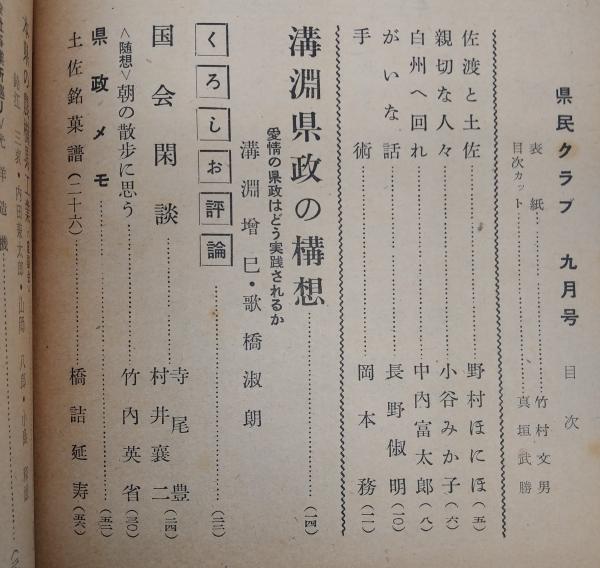 県民クラブ 九月号 目次
表紙……竹村文男
目次カット……真垣武勝
佐渡と土佐……野村ほにほ(五)
親切な人々……小谷みか子(六)
白州へ回れ……中内富太郎(八)
がいな話……長野俶明(一〇)
手術……岡本務(一一)
溝淵県政の構想……(一四)
愛情の県政はどう実践されるか
溝淵增巳・歌橋淑朗
くろしお評論……(二二)
国会閑談……寺尾豊
村井襄二(二四)
<随想>朝の散歩に思う……竹内英省(三〇)
県政メモ……(五二)
土佐銘菓譜(二十六)……橋詰延寿(五六)